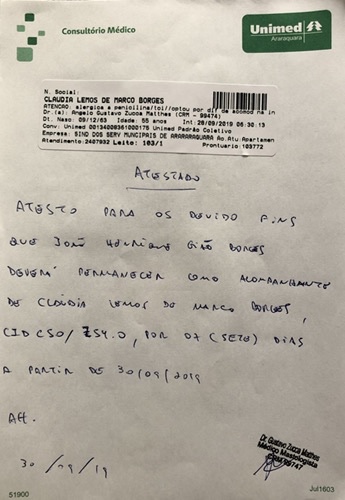 Consultório Médico
Unimed
Araraquara
N. Social:
CLAUDIA LEMOS DE MARCO BORGES
ATENCAO: alergica a penicilina/toi//optou por dif de acomod na in
Dr.(a): Angelo Gustavo Zucca Matthes (CRM - 99474)
Dt. Nasc: 09/12/63 Idade: 55 anos Int: 26/09/2019 06:30:13
Conv: Unimed 00134009361000175 Unimed Padrão Coletivo
Empresa: SIND DOS SERV MUNICIPAIS DE ARARARAQUARA Ao Atu Apartamen
Atendimento: 2407932 Leito: 103/1 Prontuario: 103772
ATESTADO
ATESTO PARA OS DEVIDO FINS
QUE JOÃO HENRIQUE GIÃO BORGES
DEVERÁ PERMANECER COMO ACOMPANHANTE
DE CLAUDIA LEMOS DE MARCO BORGES,
CID C50/Z54.0, POR 07 (SETE) DIAS
A PARTIR DE 30/09/2019
Att.
30/09/19
Dr. Gustavo Zucca Matthes
Médico Mastologista
CRM 99747
51900
Jul1603